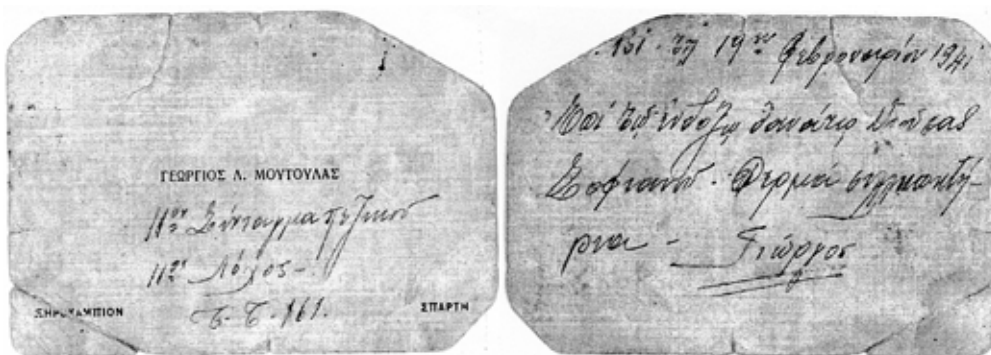 ΓΕΩΡΓΙΟΣ Λ. ΜΟΥΤΟΥΛΑΣ
11ον Σύνταγμα πεζικού
11ος Λόχος -
Τ. Τ. 161.
ΞΗΡΟΚΑΜΠΙΟΝ ΣΠΑΡΤΗ
τη 19ην Φεβρουαρίου 1941
Επί τω ενδόξω θανάτω
Σοφιανού. Θερμά συλλυπητή-
ρια -
Γιώργος